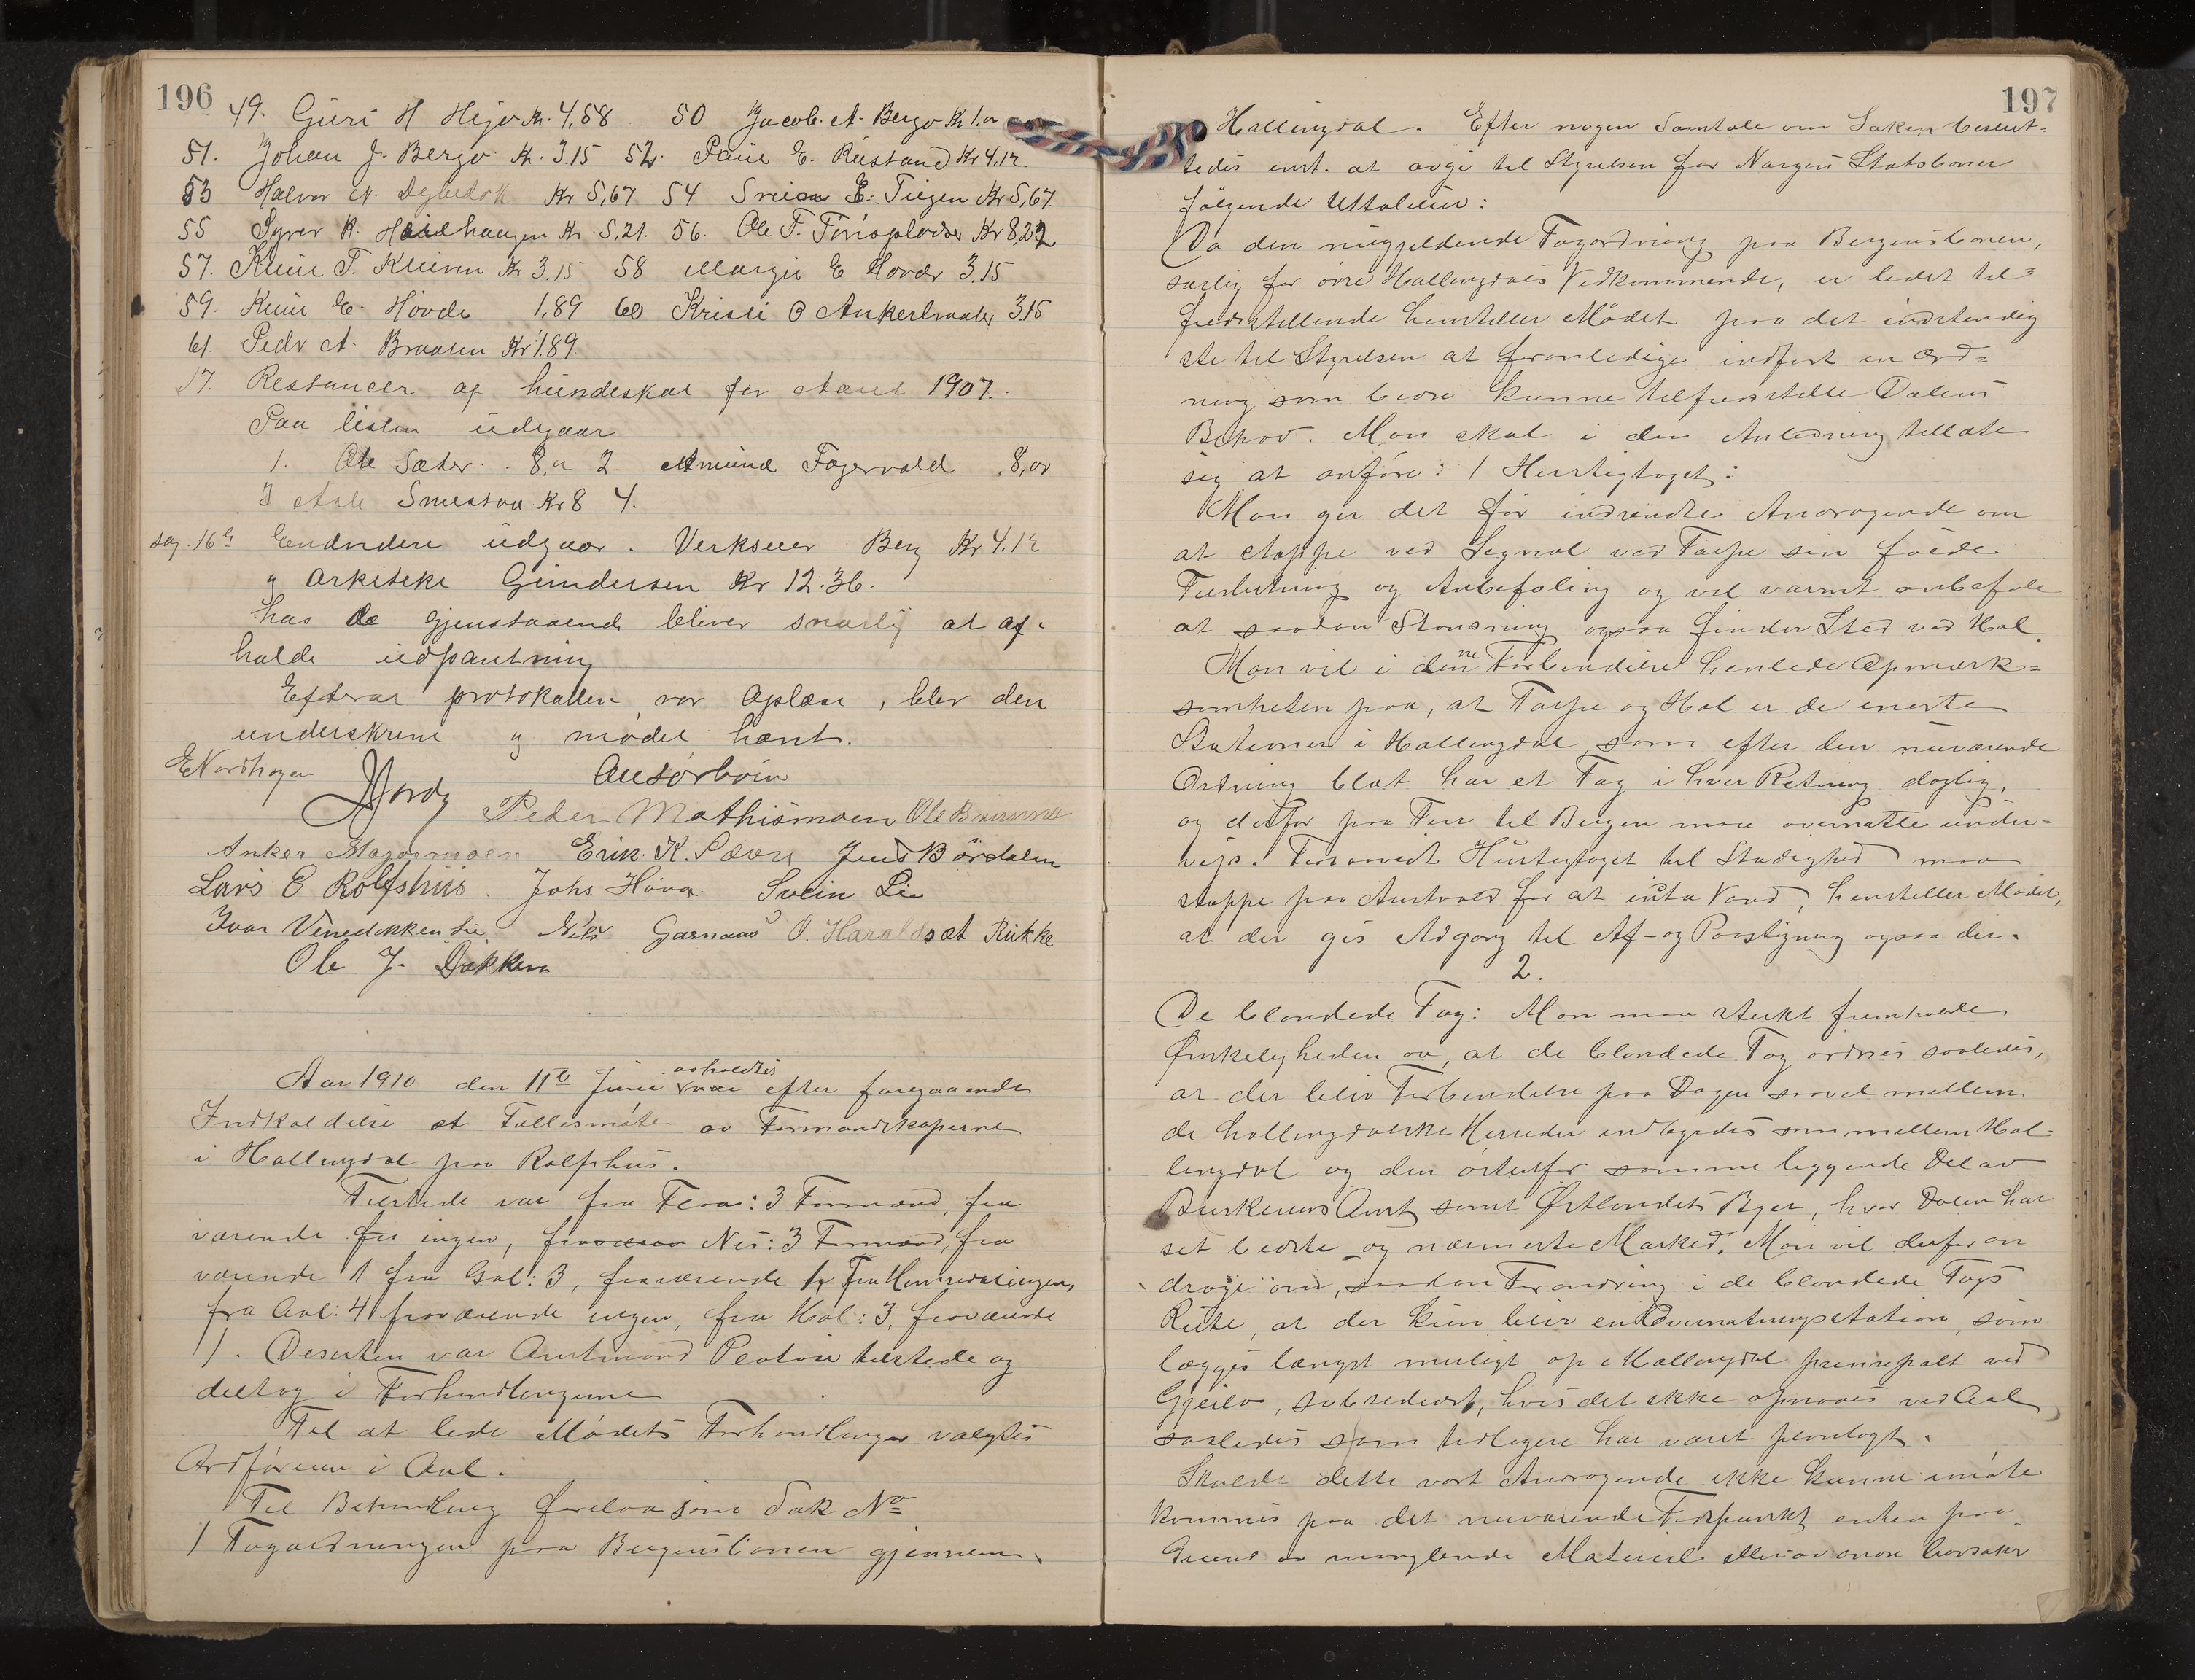 196
49. Guri H Hejo Kr. 4,58 50 Jacob. A. Bergo Kr 1.
51. Johan J. Bergo Kr. 3.15 52. Paul E. Rustand Kr 4,12
53 Halvor N. Kr 5,67 54 Svein E. Tiegen Kr 5,67.
55 Syver K. Kr. 5,21. 56. Ole T. Kr 8,22
57. Knut T. Kr 3.15 58 Margit E Hovde 3.15
59. Knut E. Hovde 1,89 60 Kristi O 3.15
61. Peder A. Braaten Kr 1.89
17. Restancer af hundeskat for Aaret 1907.
Paa listen udgaar
1. Ole Sæter. 8, 2. Amund Fagervold 8,00
3 Asle Kr 8 4.
sag. 16 Endvidere udgaar. Berg Kr 4.12
og Arkitekt Gundersen Kr 12.36.
hos de gjenstaaende bliver snarlig at af-
holde udpantning
Efterat protokollen var Oplæst, blev den
underskrevet og mødet hævet.
E Nordhagen
Peder Mathismoen Ole
Anker Erik. K. Jens Børdalen
Lars E Rolfshus. Johs Hove. Svein Lie
Ivar Nils Garnaas O. Haraldset Rukke
Ole J. Dokken
Aar 1910 den 11te Juni avholdtes efter foregaaende
Indkaldelse et Fællesmøte av Formandskaperne
i Hallingdal paa Rolfshus.
Tilstede var fra Flaa: 3 Formænd, fra
værende ingen, Nes: 3 Formænd, fra
værende 1 fra Gol: 3, fraværende 1, fra Hemsedal ingen,
fra Aal: 4 fraværende ingen, fra Hol: 3, fraværende
1. Desuten var Amtmand tilstede og
deltog i Forhandlingerne
Til at lede Mødets Forhandlinger valgtes
Ordføreren i Aal.
Til Behandling forelaa som Sak No
1 Togordningen paa Bergensbanen gjennem
197
Hallingdal. Efter nogen Samtale om Saken beslut-
tedes enst. at avgi til Styrelsen for Norges Statsbaner
følgende Uttalelse:
Da den nugjeldende Togordning paa Bergensbanen,
særlig for øvre Hallingdals Vedkommende, er lidet til-
fredsstillende henstiller Mødet paa det indstændig
ste til Styrelsen at foranledige indført en Ord-
ning som bedre kunne tilfredsstille Dalens
Behov. Man skal i den Anledning tillate
sig at anføre: 1 Hurtigtoget:
Man gir det før indsendte Andragende om
at stoppe ved Signal ved Torpe sin fulde
Tilslutning og Anbefaling og vil varmt anbefale
at saadan Stansning ogsaa finder Sted ved Hol.
Man vil i denne Forbindelse henlede Opmærk-
somheten paa, at Torpe og Hol er de eneste
Stationer i Hallingdal som efter den nuværende
Ordning blot har et Tog i hver Retning daglig,
og derfor paa Tur til Bergen maa overnatte under-
vejs. Forsaavidt Hurtigtoget til Stadighed maa
stoppe paa Austvoll for at inta Vand, henstiller Mødet,
at der gis Adgang til Af- og Paastigning ogsaa der.
2.
De blandede Tog: Man maa sterkt fremholde
Ønskeligheden av, at de blandede Tog ordnes saaledes,
at der blir Forbindelse paa Dagen saavel mellem
de hallingdalske Herreder indbyrdes som mellem Hal-
lingdal og den østenfor samme liggende Del av
Buskeruds Amt samt Østlandets Byer, hvor Dalen har
sit bedste og nærmeste Marked. Man vil derfor an
drage om, saadan Forandring i de blandede Togs
Rute, at der kun blir en Overnatningsstation, som
lægges længst muligt op i Hallingdal principalt ved
Gjeilo, subsidiært, hvis det ikke opnaaes ved Aal
saaledes som tidligere har været planlagt.
Skulde dette vort Andragende ikke kunne imøte
kommes paa det nuværende Tidspunkt enten paa
Grund av manglende Materiel eller av andre Aarsaker